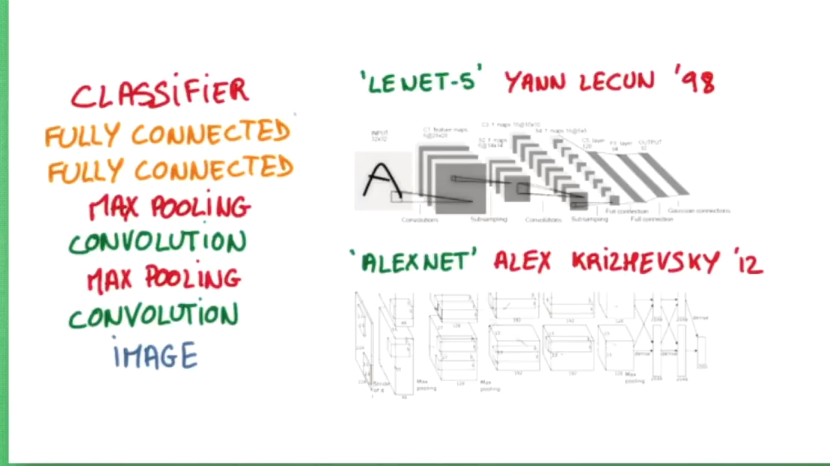 CLASSIFIER
FULLY CONNECTED
FULLY CONNECTED
MAX POOLING
CONVOLUTION
MAX POOLING
CONVOLUTION
IMAGE
'LENET-5' YANN LECUN '98
INPUT
32x32
C1: feature maps
6@28x28
C3: f. maps 16@10x10
S2: f. maps
6@14x14
S4: f. maps 16@5x5
C5: layer
120
F6: layer
84
OUTPUT
10
A
Convolutions
Subsampling
Convolutions
Subsampling
Full connection
Full connection
Gaussian connections
'ALEXNET' ALEX KRIZHEVSKY '12
Max
pooling
Max
pooling
Max
pooling
dense
dense
dense